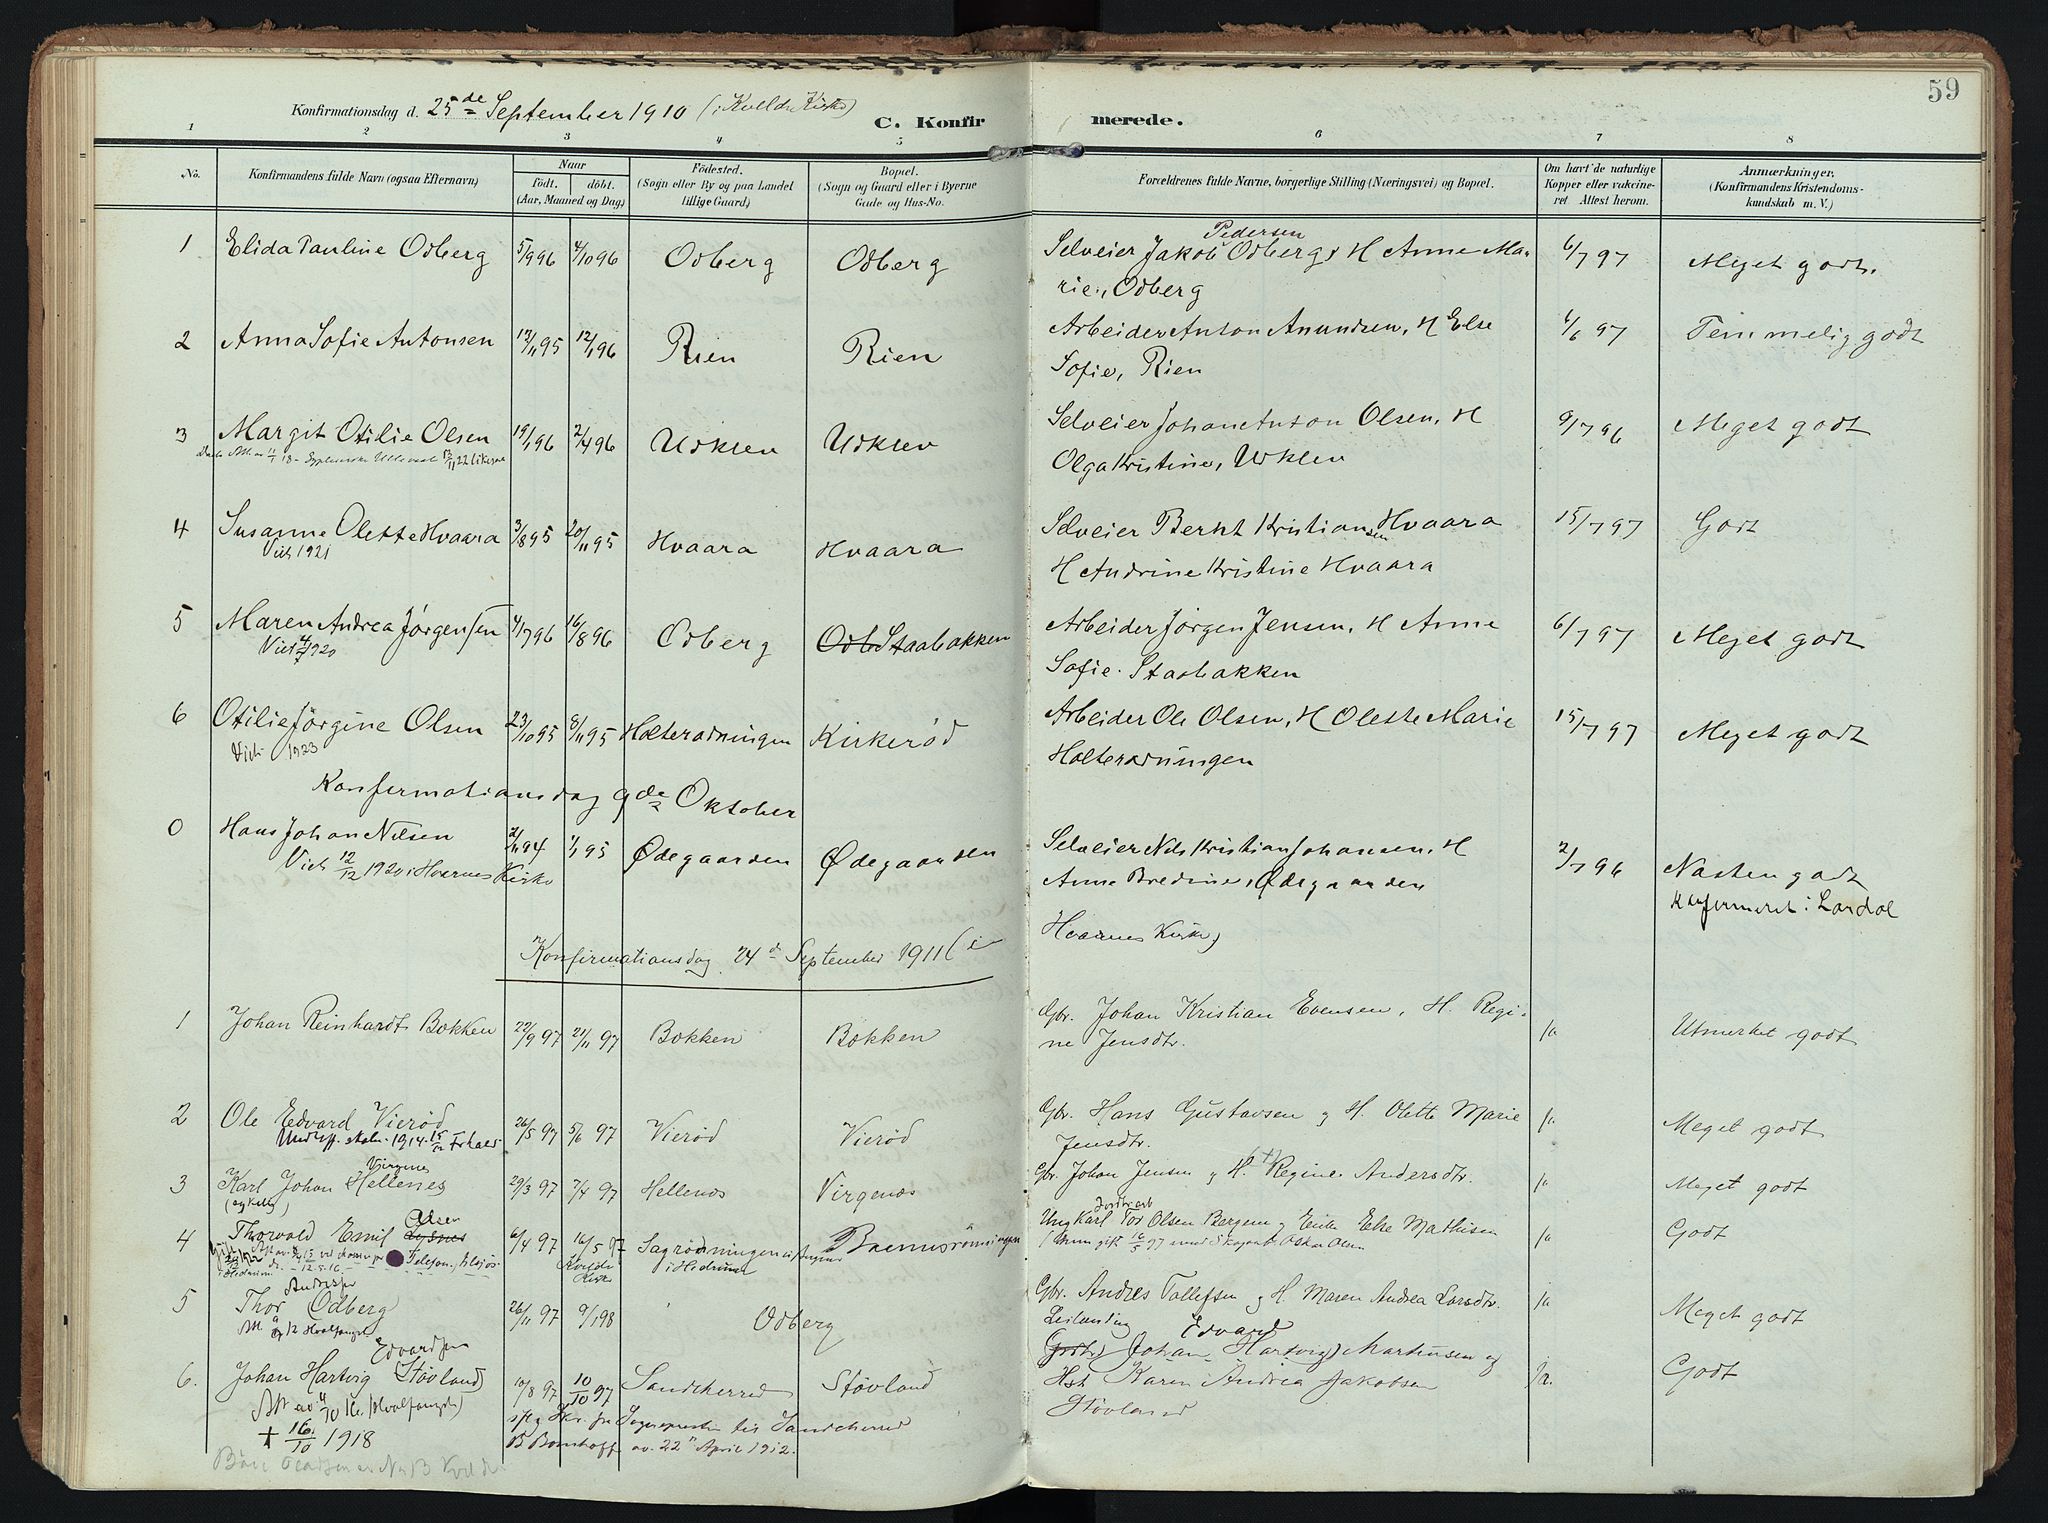 59
Konfirmationsdag d. 25de September 1910 (i Kvelde Kirke)
C. Konfirmerede.
1 2 3 4 5 6 7 8
No. Konfirmandens fulde Navn (ogsaa Efternavn) Naar født. døbt. (Aar, Maaned og Dag) Fødested. (Sogn eller By og paa Landet tillige Gaard) Bopæl. (Sogn og Gaard eller i Byerne Gade og Hus-No. Forældrenes fulde Navne, borgerlige Stilling (Næringsvei) og Bopæl. Om havt de naturlige Kopper eller vakcineret. Attest herom. Anmærkninger. (Konfirmandens Kristendomskundskab m. V.)
1 Elida Pauline Odberg 5/9 96 4/10 96 Odberg Odberg Selveier Jakob Pedersen Odberg, H Anne Ma-
rie, Odberg 6/7 97 Meget godt.
2 Anna Sofie Antonsen 12/11 95 12/1 96 Rien Rien Arbeider Anton Amundsen, H Else
Sofie, Rien 4/6 97 Temmelig godt
3 Margit Otilie Olsen 19/1 96 2/4 96 Udklev Udklev Selveier Johan Anton Olsen, H
Olga Kristine, Uklev 9/7 96 Meget godt
4 Susanne Olette Hvaara 3/8 95 20/11 95 Hvaara Hvaara Selveier Bernt Kristiansen Hvaara
Viet 1921
H Andrine Kristine Hvaara 15/7 97 Godt
5 Maren Andrea Jørgensen 4/7 96 16/8 96 Odberg Staabakken Arbeider Jørgen Jensen, H Anne
Viet 1920
Sofie. Staabakken 6/7 97 Meget godt
6 Otilie Jørgine Olsen 23/10 95 8/11 95 Holterødningen Kirkerød Arbeider Ole Olsen, H Olette Marie
Viet 1923
Holterødningen 15/7 97 Meget godt
Konfirmationsdag 9de Oktober
0 Hans Johan Nilsen 2/11 94 1/1 95 Ødegaarden Ødegaarden Selveier Nils Kristian Johansen, H
Viet 12/12 1920 i Hvarnes Kirke
Anne Bredine, Ødegaarden 2/7 96 Næsten godt
Konfirmeret i Lardal
Konfirmationsdag 24d September 1911 (i Hvarnes Kirke)
1 Johan Reinhardt Bakken 22/9 97 21/11 97 Bakken Bakken Gbr. Johan Kristian Evensen, H. Regi-
ne Jensdtr. ja Utmerket godt
2 Ole Edvard Vierød 26/5 97 5/6 97 Vierød Vierød Gbr. Hans Gustavsen og H. Olette Marie
Jensdtr. ja Meget godt
3 Karl Johan Hellenes Virgenes 29/3 97 7/4 97 Hellenes Virgenes Gbr. Johan Jensen og H. Regine Andersdtr. ja Meget godt
4 Thorvald Emil Olsen 6/4 97 16/5 97 Kvelde Kirke i Hedrum Ung Karl Tor Olsen Bergem og Enke Else Mathisen ja Godt
5 Thor Andresen Odberg 26/11 97 9/1 98 Odberg Gbr. Andres Tollefsen og H. Maren Andrea Larsdtr. ja Meget godt
6. Johan Hartvig Edvardsen Støvland 10/8 97 10/10 97 Sandeherred Støvland Edvard Johan Hartvig Martinsen og
Hst Karen Andrea Jakobsen
Støvland ja. Godt
† 16/10 1918
av. 22 April 1912.